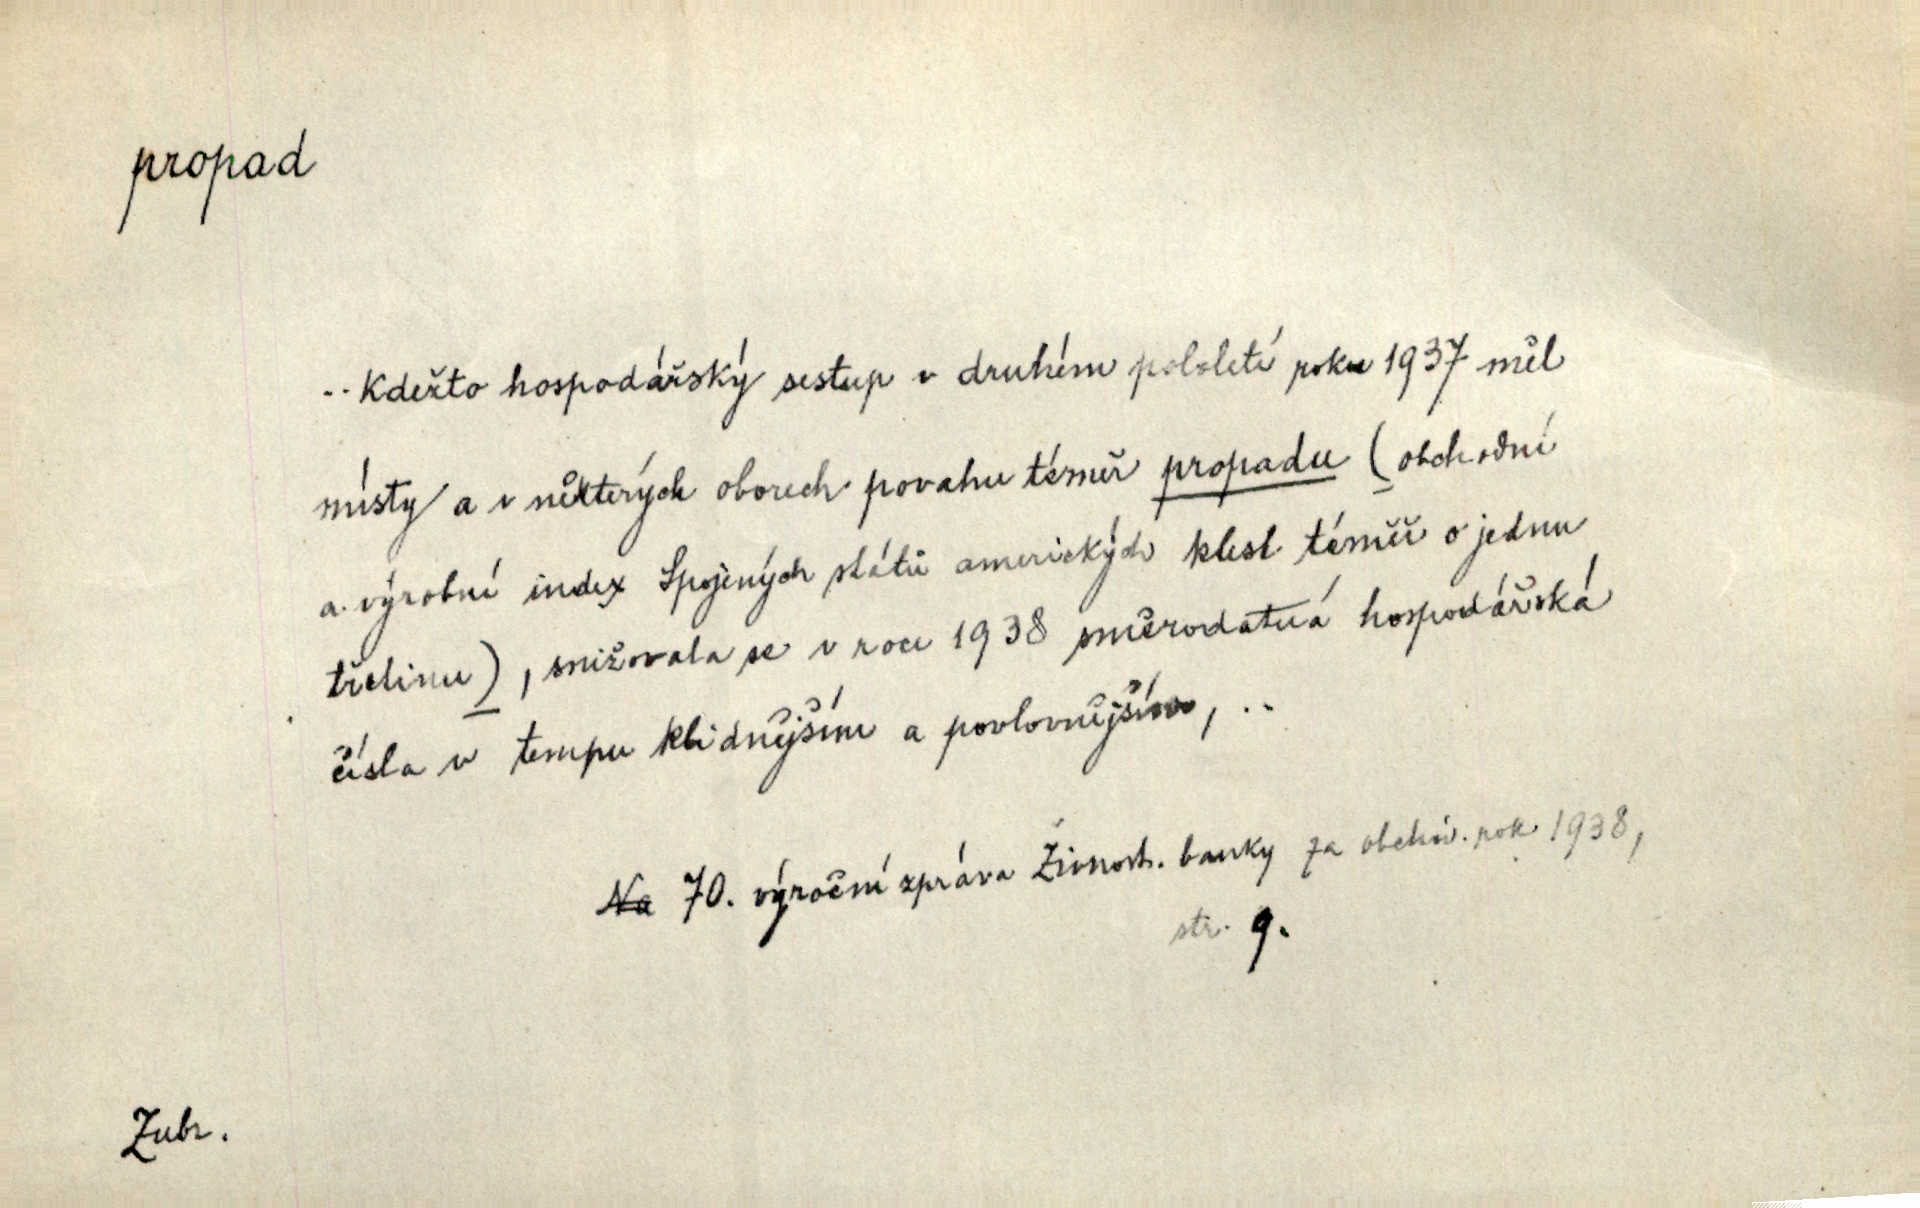 propad
..Kdežto hospodářský sestup v druhém pololetí roku 1937 měl
místy a v některých oborech povahu téměř propadu (obchodní
a výrobní index Spojených států amerických klesl téměř o jednu
třetinu), snižovala se v roce 1938 směrodatná hospodářská
čísla v tempu klidnějším a povlovnějším, ..
Na 70. výroční zpráva Živnost. banky za obchod. rok 1938,
str. 9.
Zubr.